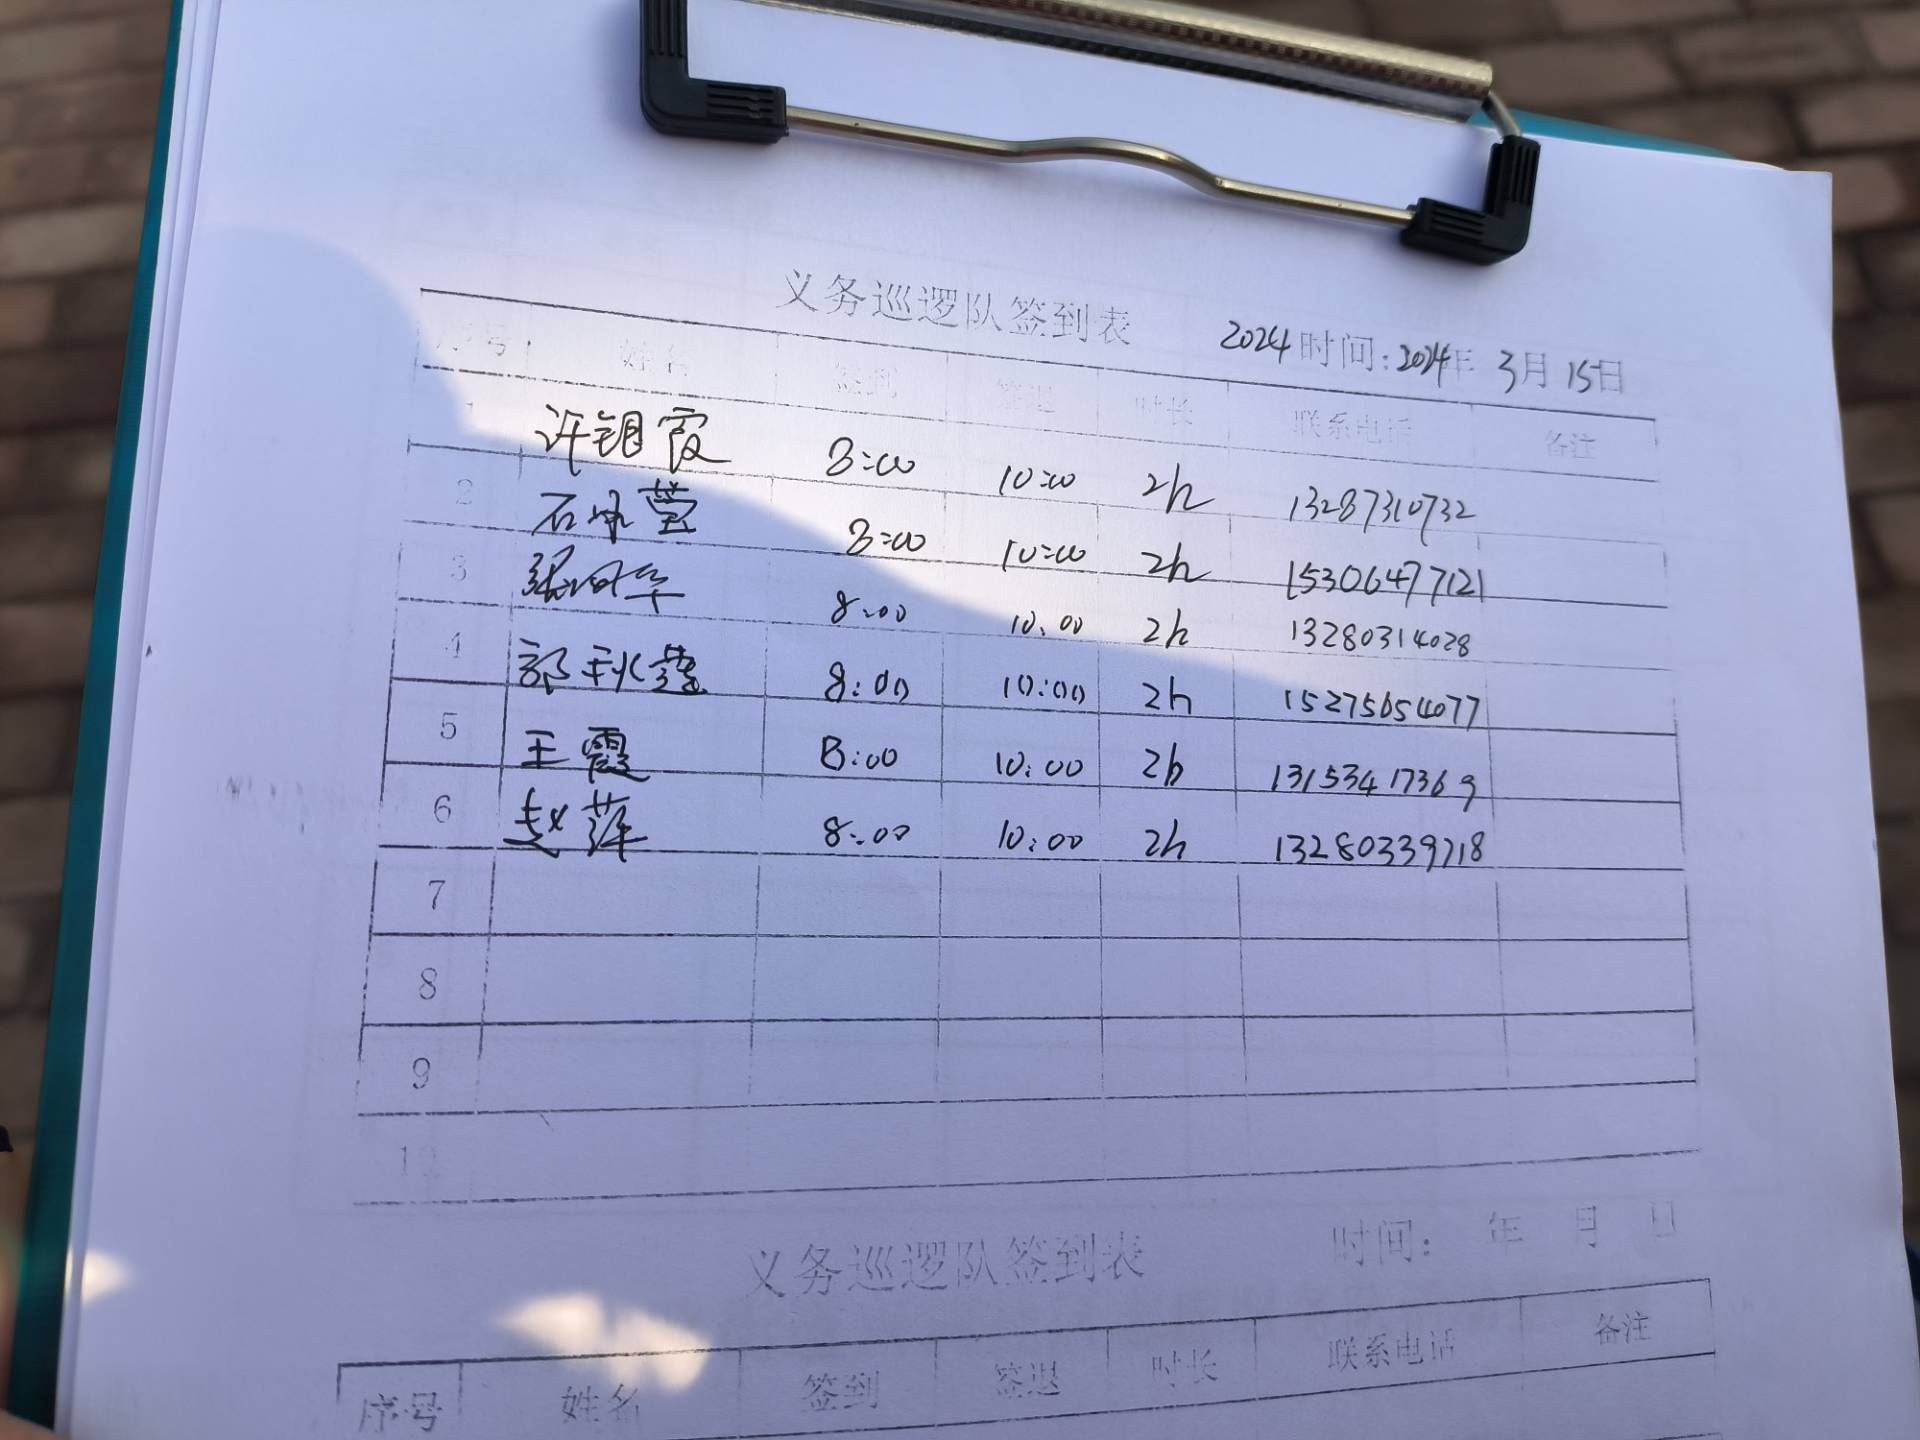 义务巡逻队签到表
2024 时间: 2024年 3月 15日
序号 姓名 签到 签退 时长 联系电话 备注
1 许钼霞 8:00 10:00 2h 13287310732
2 石咏莹 8:00 10:00 2h 15306477121
3 张 华 8:00 10:00 2h 13280314028
4 郭秋莲 8:00 10:00 2h 15275654077
5 王霞 8:00 10:00 2h 13153417369
6 赵萍 8:00 10:00 2h 13280339718
7
8
9
10
义务巡逻队签到表
时间: 年 月 日
序号 姓名 签到 签退 时长 联系电话 备注